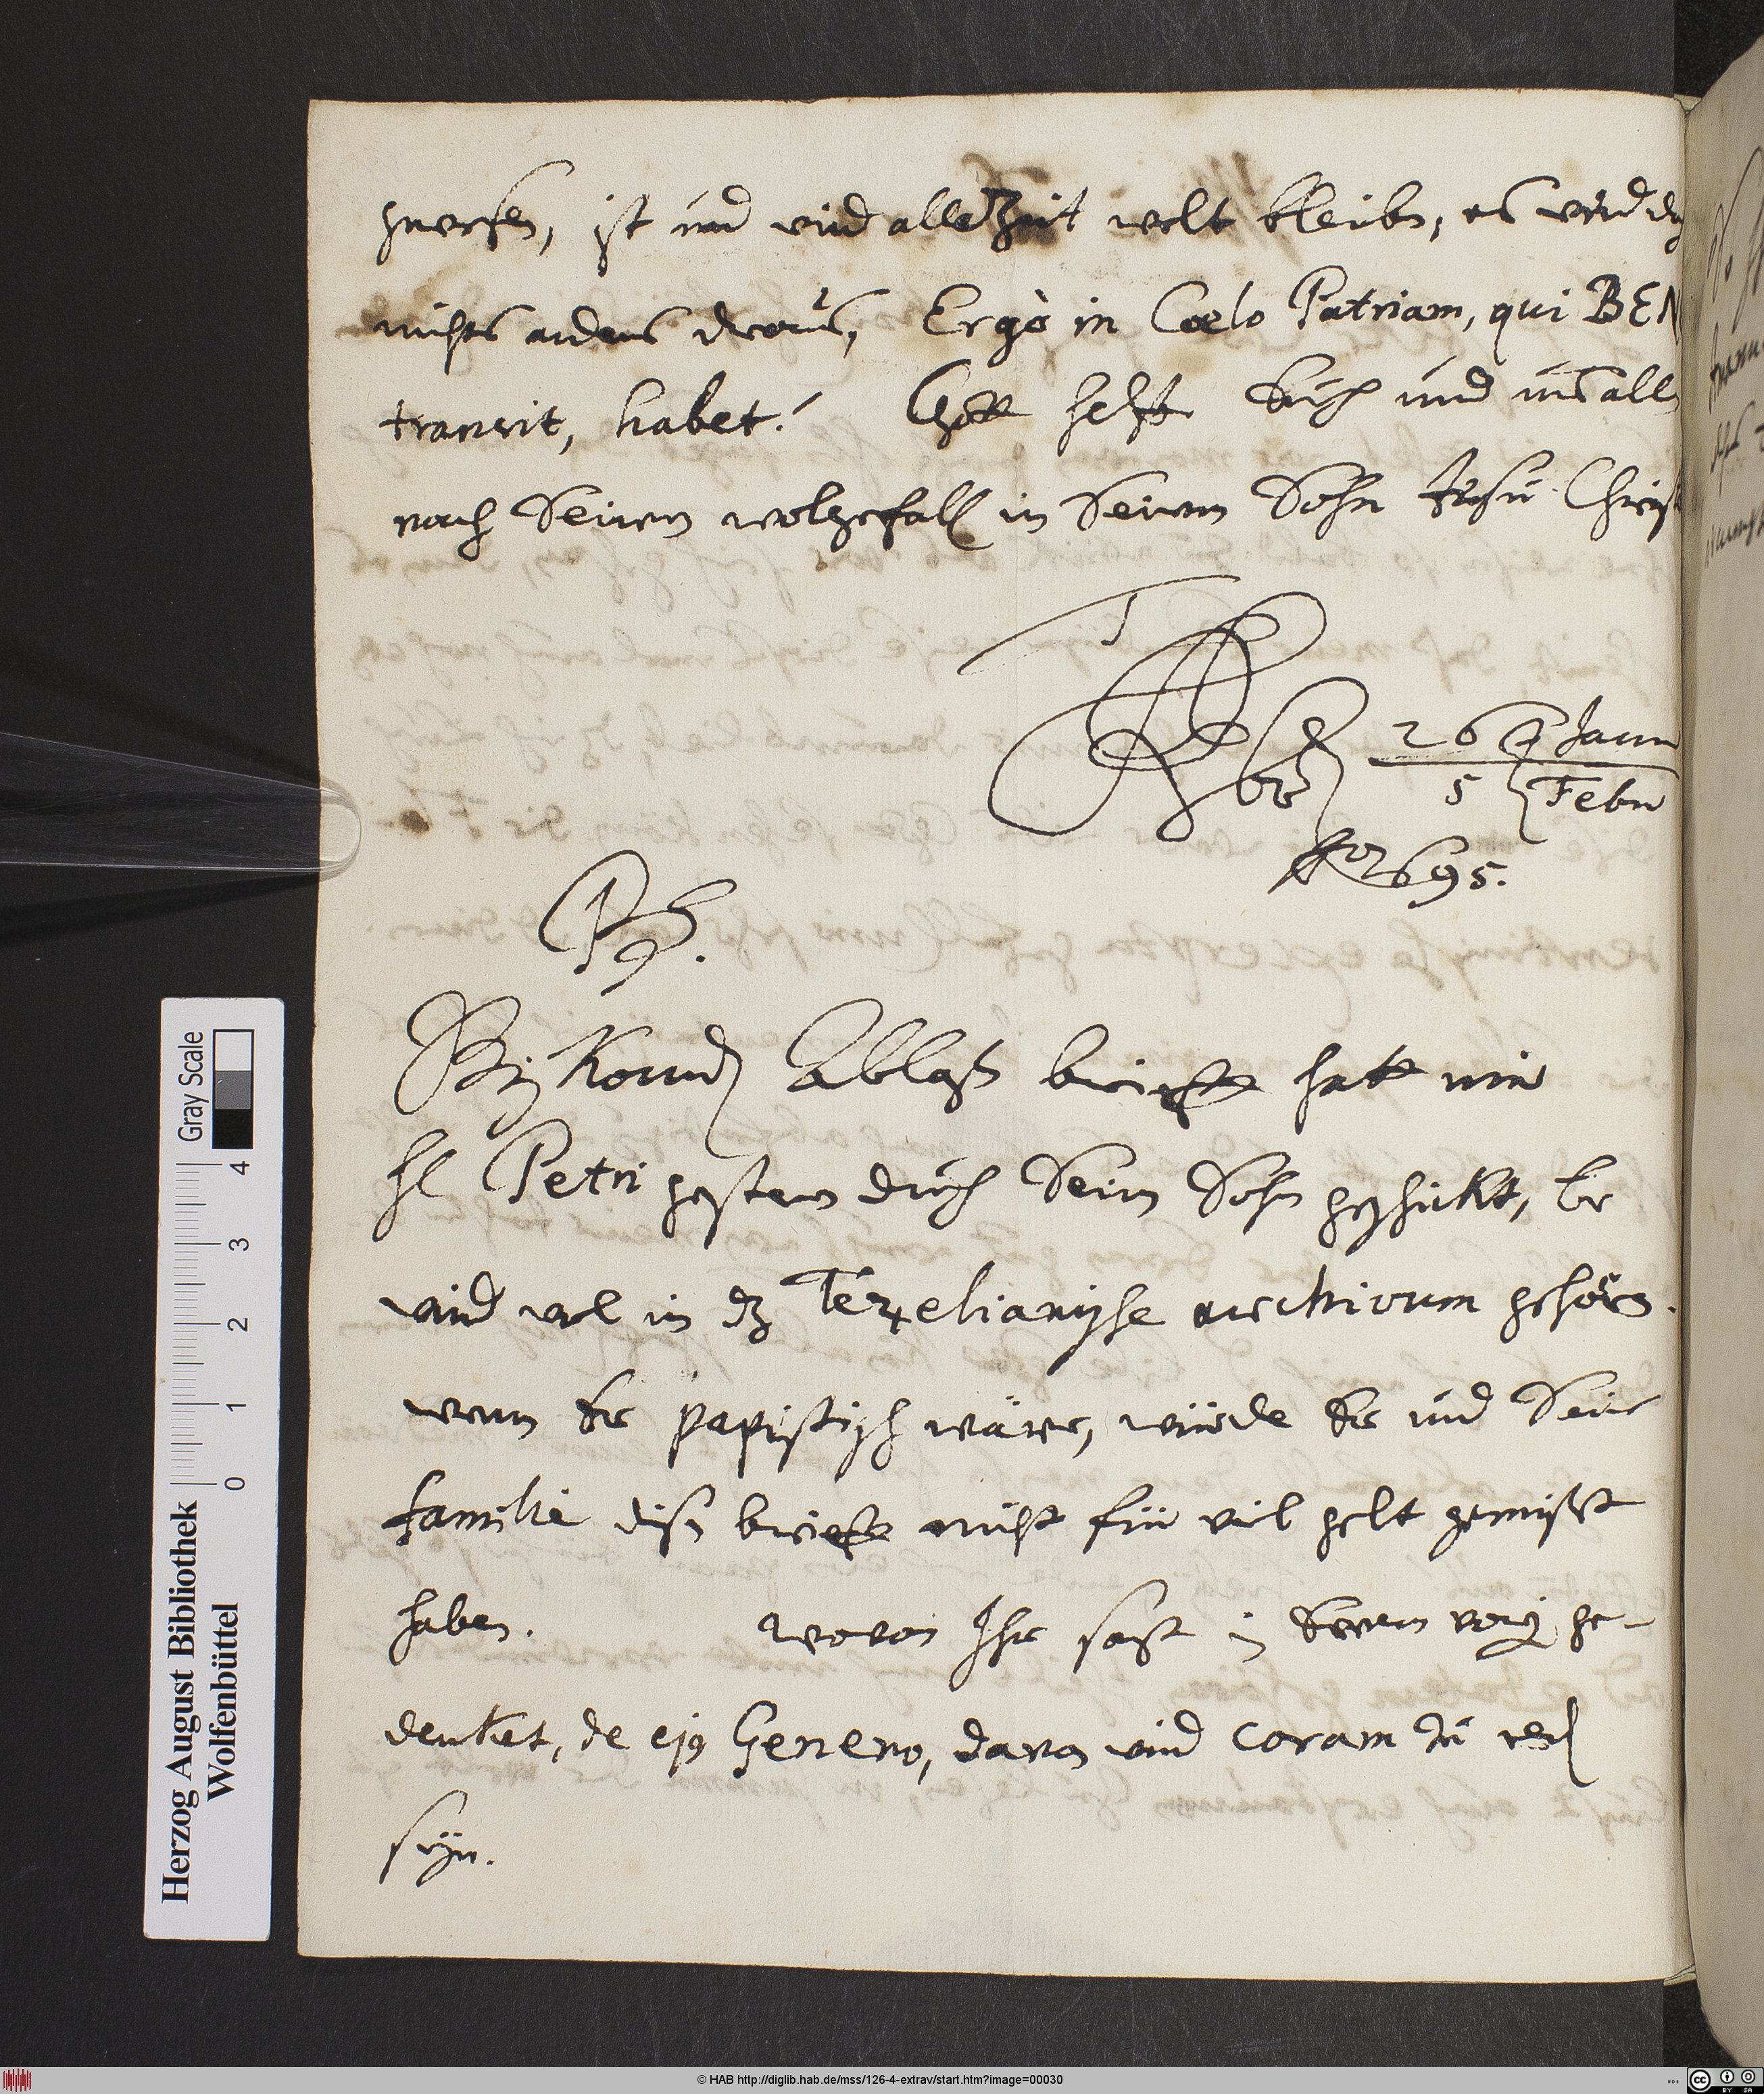 gewesen, ist und wird alle Zeit welt bleiben, es wird
nichts anders draus, Ergò in Coelo Patriam, qui BEN
transit, habet! Gott helffe Euch und uns allen
nach Seinem wolgefallen in Seinem Sohn Jesu Christ
26 Janu
5 Febr
1695.
PS.
Beykommenden Ablaß brieffe hatt mir
H Petri gestern durch Seinen Sohn geschickt, Er
wird wol in dz Tezelianische archivum gehören.
wenn Er papistisch wäre, würde Er und Seine
familie disen brieffe nicht für viel gelt gemißt
haben. wovon Ihr sonst in Eurem vorigen ge-
denket, de ejus Genero, davon wird coram zu reden
seyn.
Herzog August Bibliothek
Wolfenbüttel
Gray Scale
0 1 2 3 4
© HAB http://diglib.hab.de/mss/126-4-extrav/start.htm?image=00030